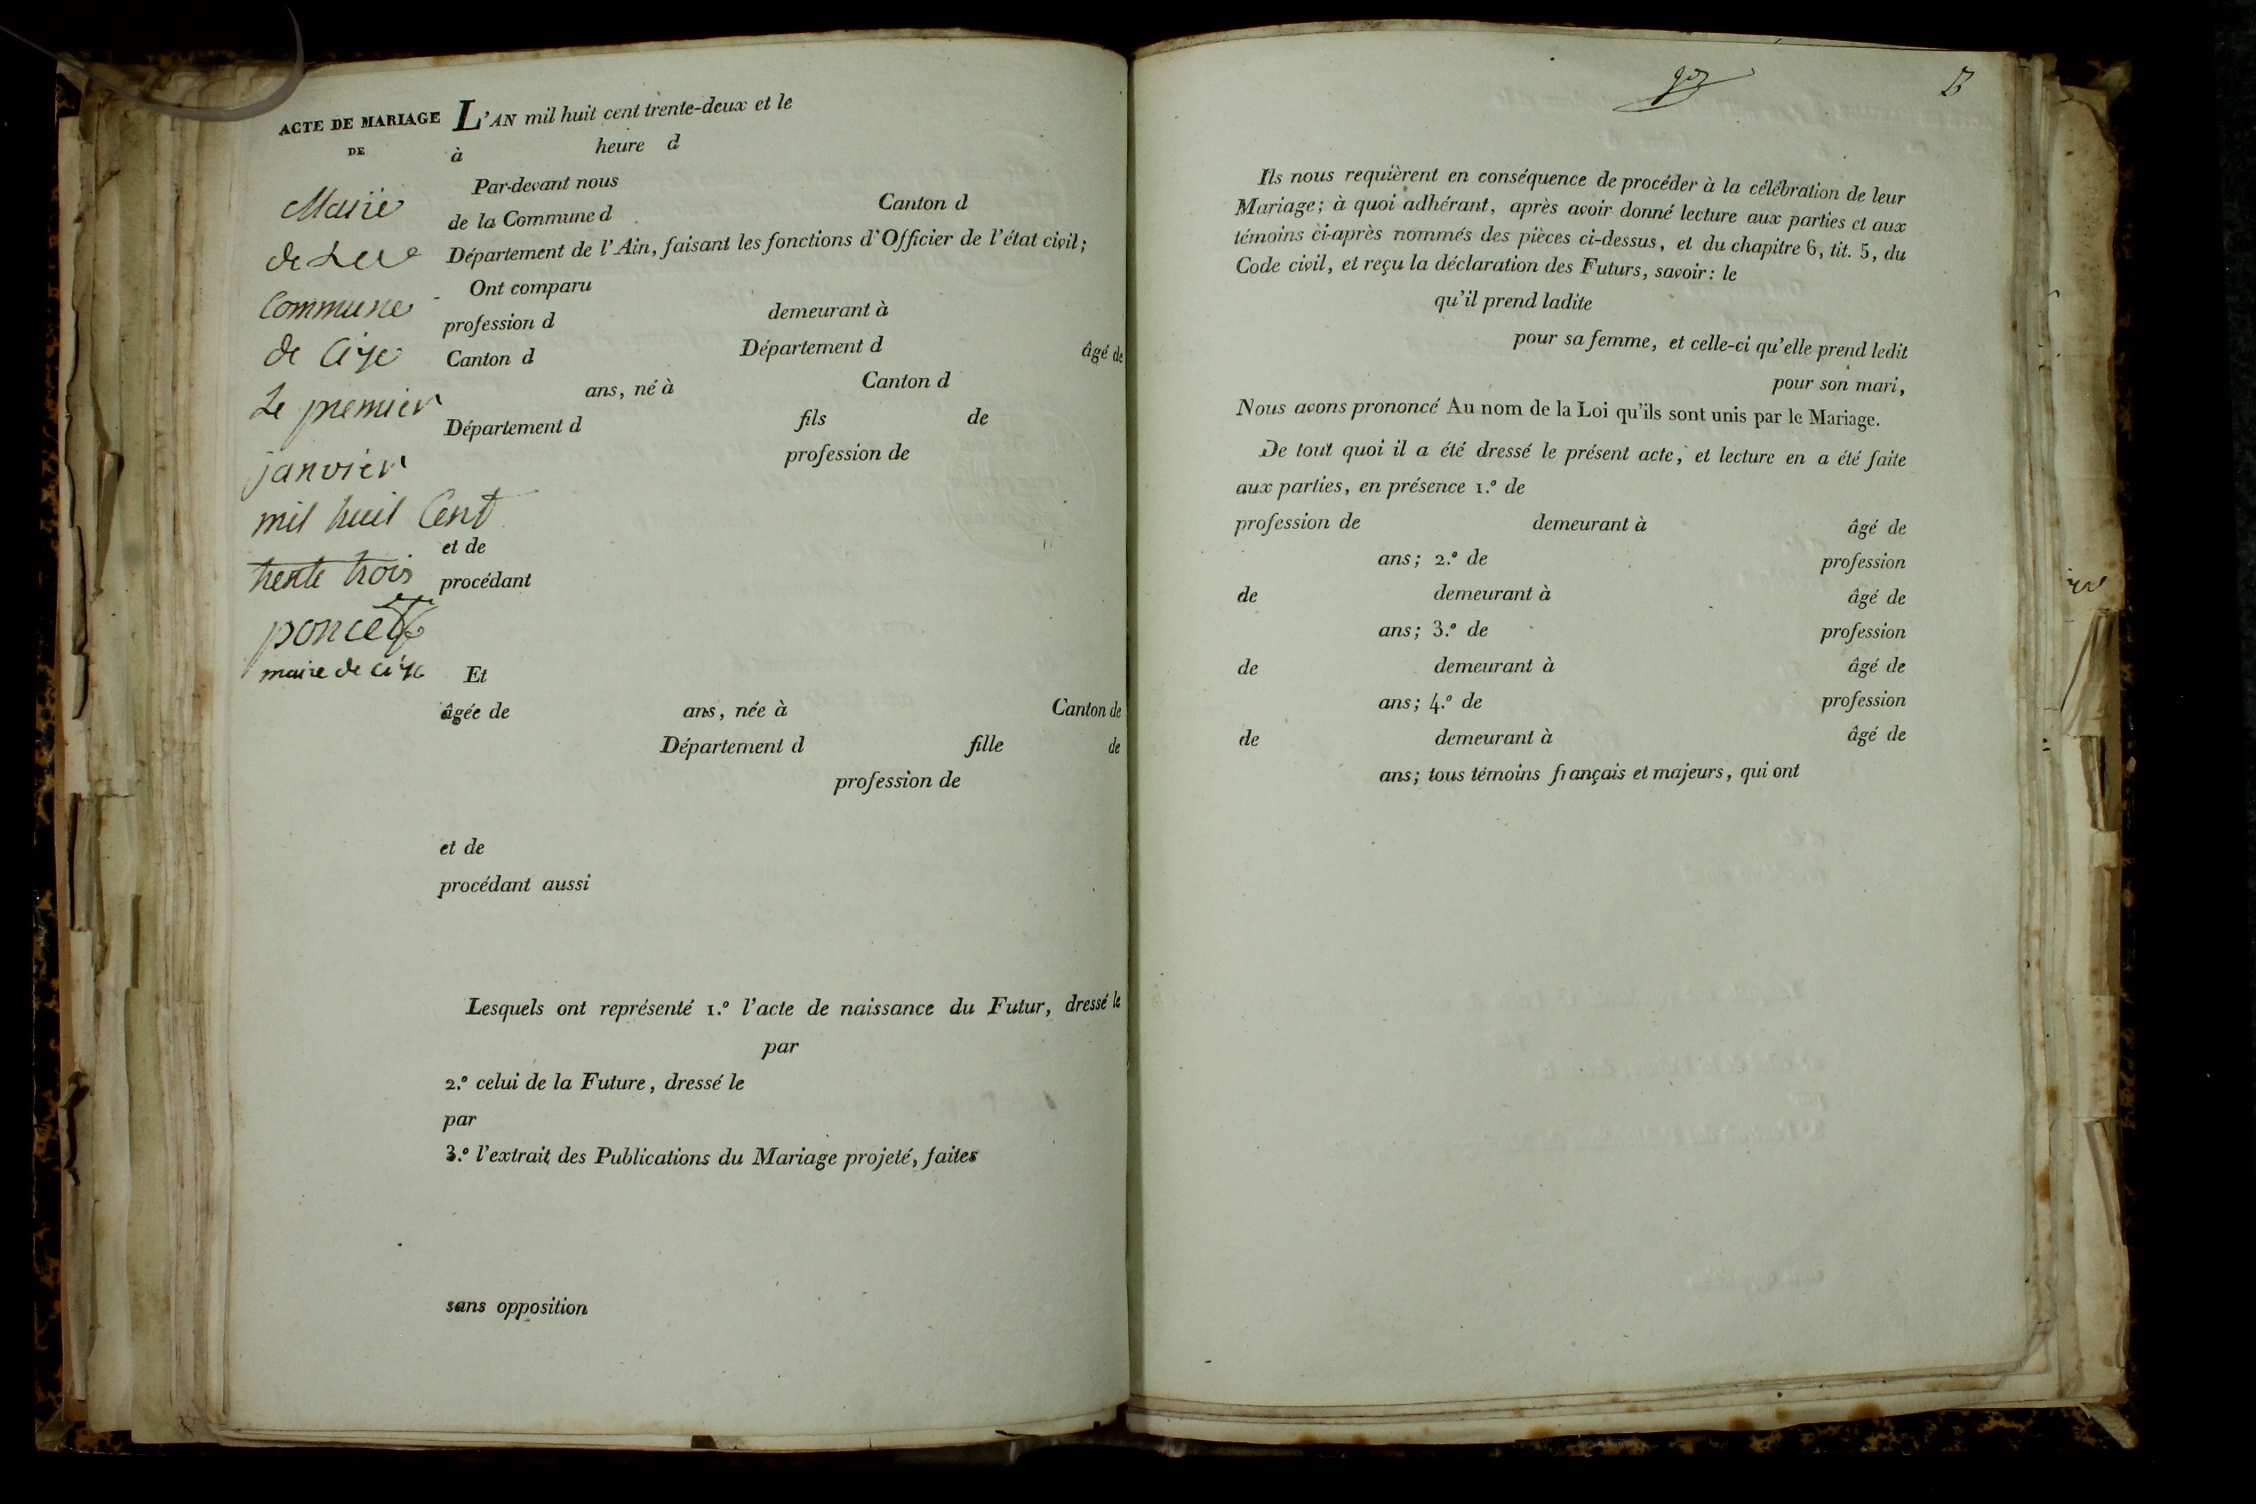 ACTE DE MARIAGE
DE
L'AN mil huit cent trente-deux et le
à heure d
Par-devant nous
de la Commune d Canton d
Département de l'Ain, faisant les fonctions d'Officier de l'état civil;
Ont comparu
profession d demeurant à
Canton d Département d âgé de
ans, né à Canton d
Département d fils de
profession de
et de
procédant
Et
âgée de ans, née à Canton de
Département d fille de
profession de
et de
procédant aussi
Lesquels ont représenté 1.º l'acte de naissance du Futur, dressé le
par
2.º celui de la Future, dressé le
par
3.º l'extrait des Publications du Mariage projeté, faites
sans opposition
commune
de Cize
Le premier
janvier
mil huit Cent
trente trois
poncet
maire de Cize
Ils nous requièrent en conséquence de procéder à la célébration de leur
Mariage; à quoi adhérant, après avoir donné lecture aux parties et aux
témoins ci-après nommés des pièces ci-dessus, et du chapitre 6, tit. 5, du
Code civil, et reçu la déclaration des Futurs, savoir: le
qu'il prend ladite
pour sa femme, et celle-ci qu'elle prend ledit
pour son mari,
Nous avons prononcé Au nom de la Loi qu'ils sont unis par le Mariage.
De tout quoi il a été dressé le présent acte, et lecture en a été faite
aux parties, en présence 1.º de
profession de demeurant à âgé de
ans; 2.º de profession
de demeurant à âgé de
ans; 3.º de profession
de demeurant à âgé de
ans; 4.º de profession
de demeurant à âgé de
ans; tous témoins français et majeurs, qui ont